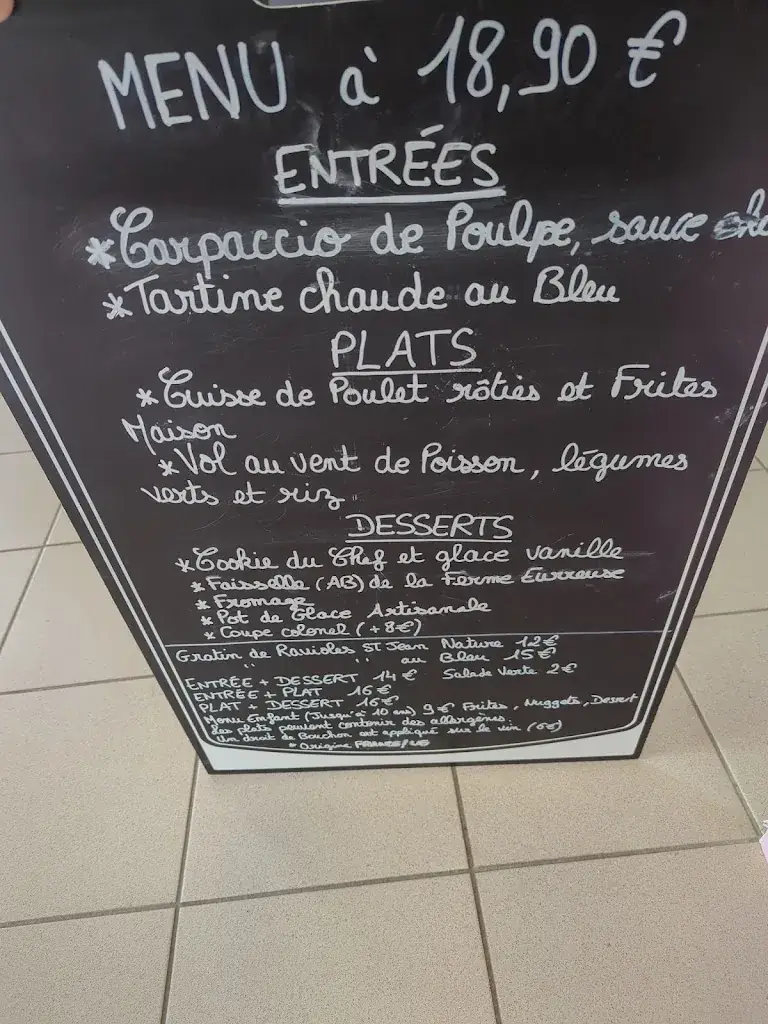 MENU à 18,90 €
ENTRÉES
*Carpaccio de Poulpe, sauce
*Tartine chaude au Bleu
PLATS
*Cuisse de Poulet rôties et Frites
Maison
*Vol au vent de Poisson, légumes
verts et riz
DESSERTS
*Cookie du Chef et glace vanille
*Faisselle (AB) de la Ferme Eurreuse
*Fromage
*Pot de Glace Artisanale
*Coupe colonel (+8€)
Gratin de Ravioles ST Jean Nature 12€
" " au Bleu 15€
ENTRÉE + DESSERT 14€ Salade Verte 2€
ENTRÉE + PLAT 16€
PLAT + DESSERT 16€
Menu Enfant (Jusqu'à 10 ans) 9€ Frites, Nuggets, Dessert
Les plats peuvent contenir des allergènes.
Un droit de Bouchon est appliqué sur le vin (6€)
* Origine FRANCE/UE